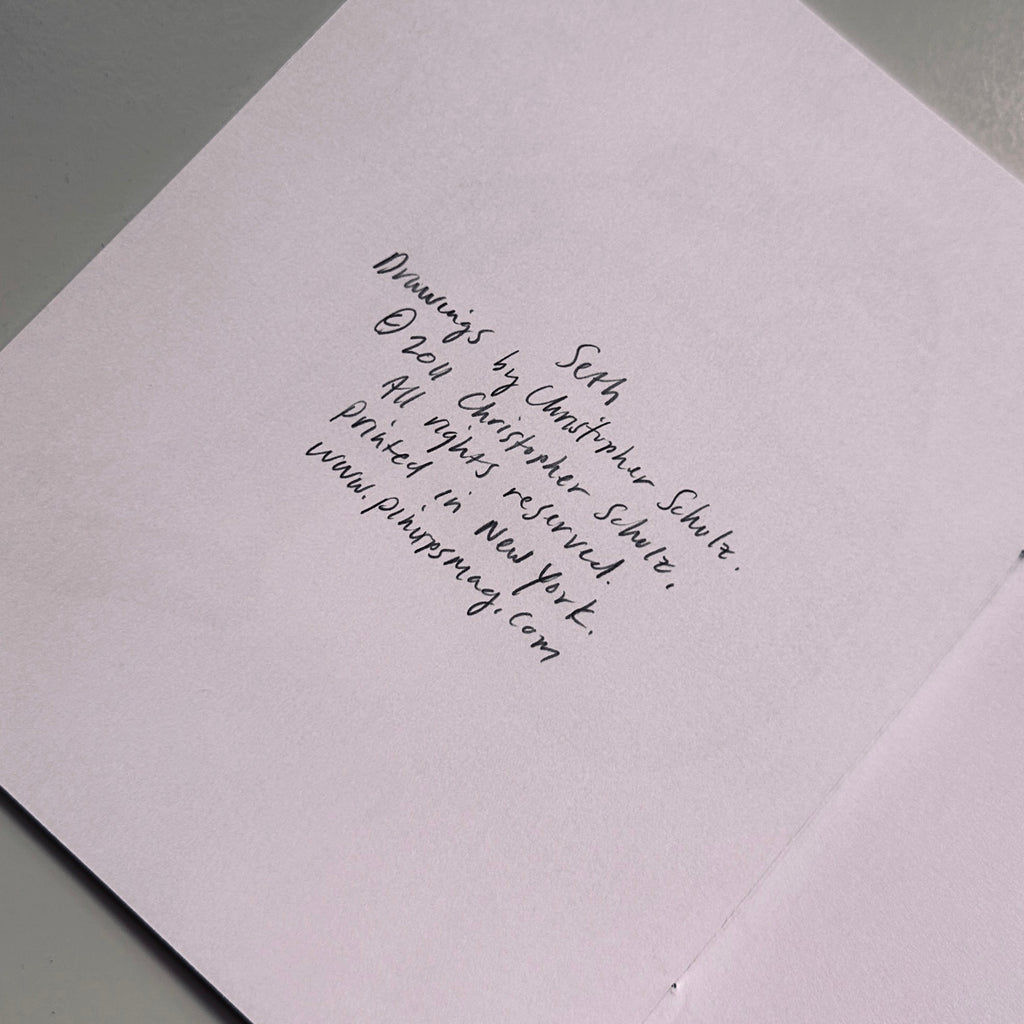 Seth
Drawings by Christopher Schulz.
© 2011 Christopher Schulz.
All rights reserved.
Printed in New York.
www.pinupsmag.com